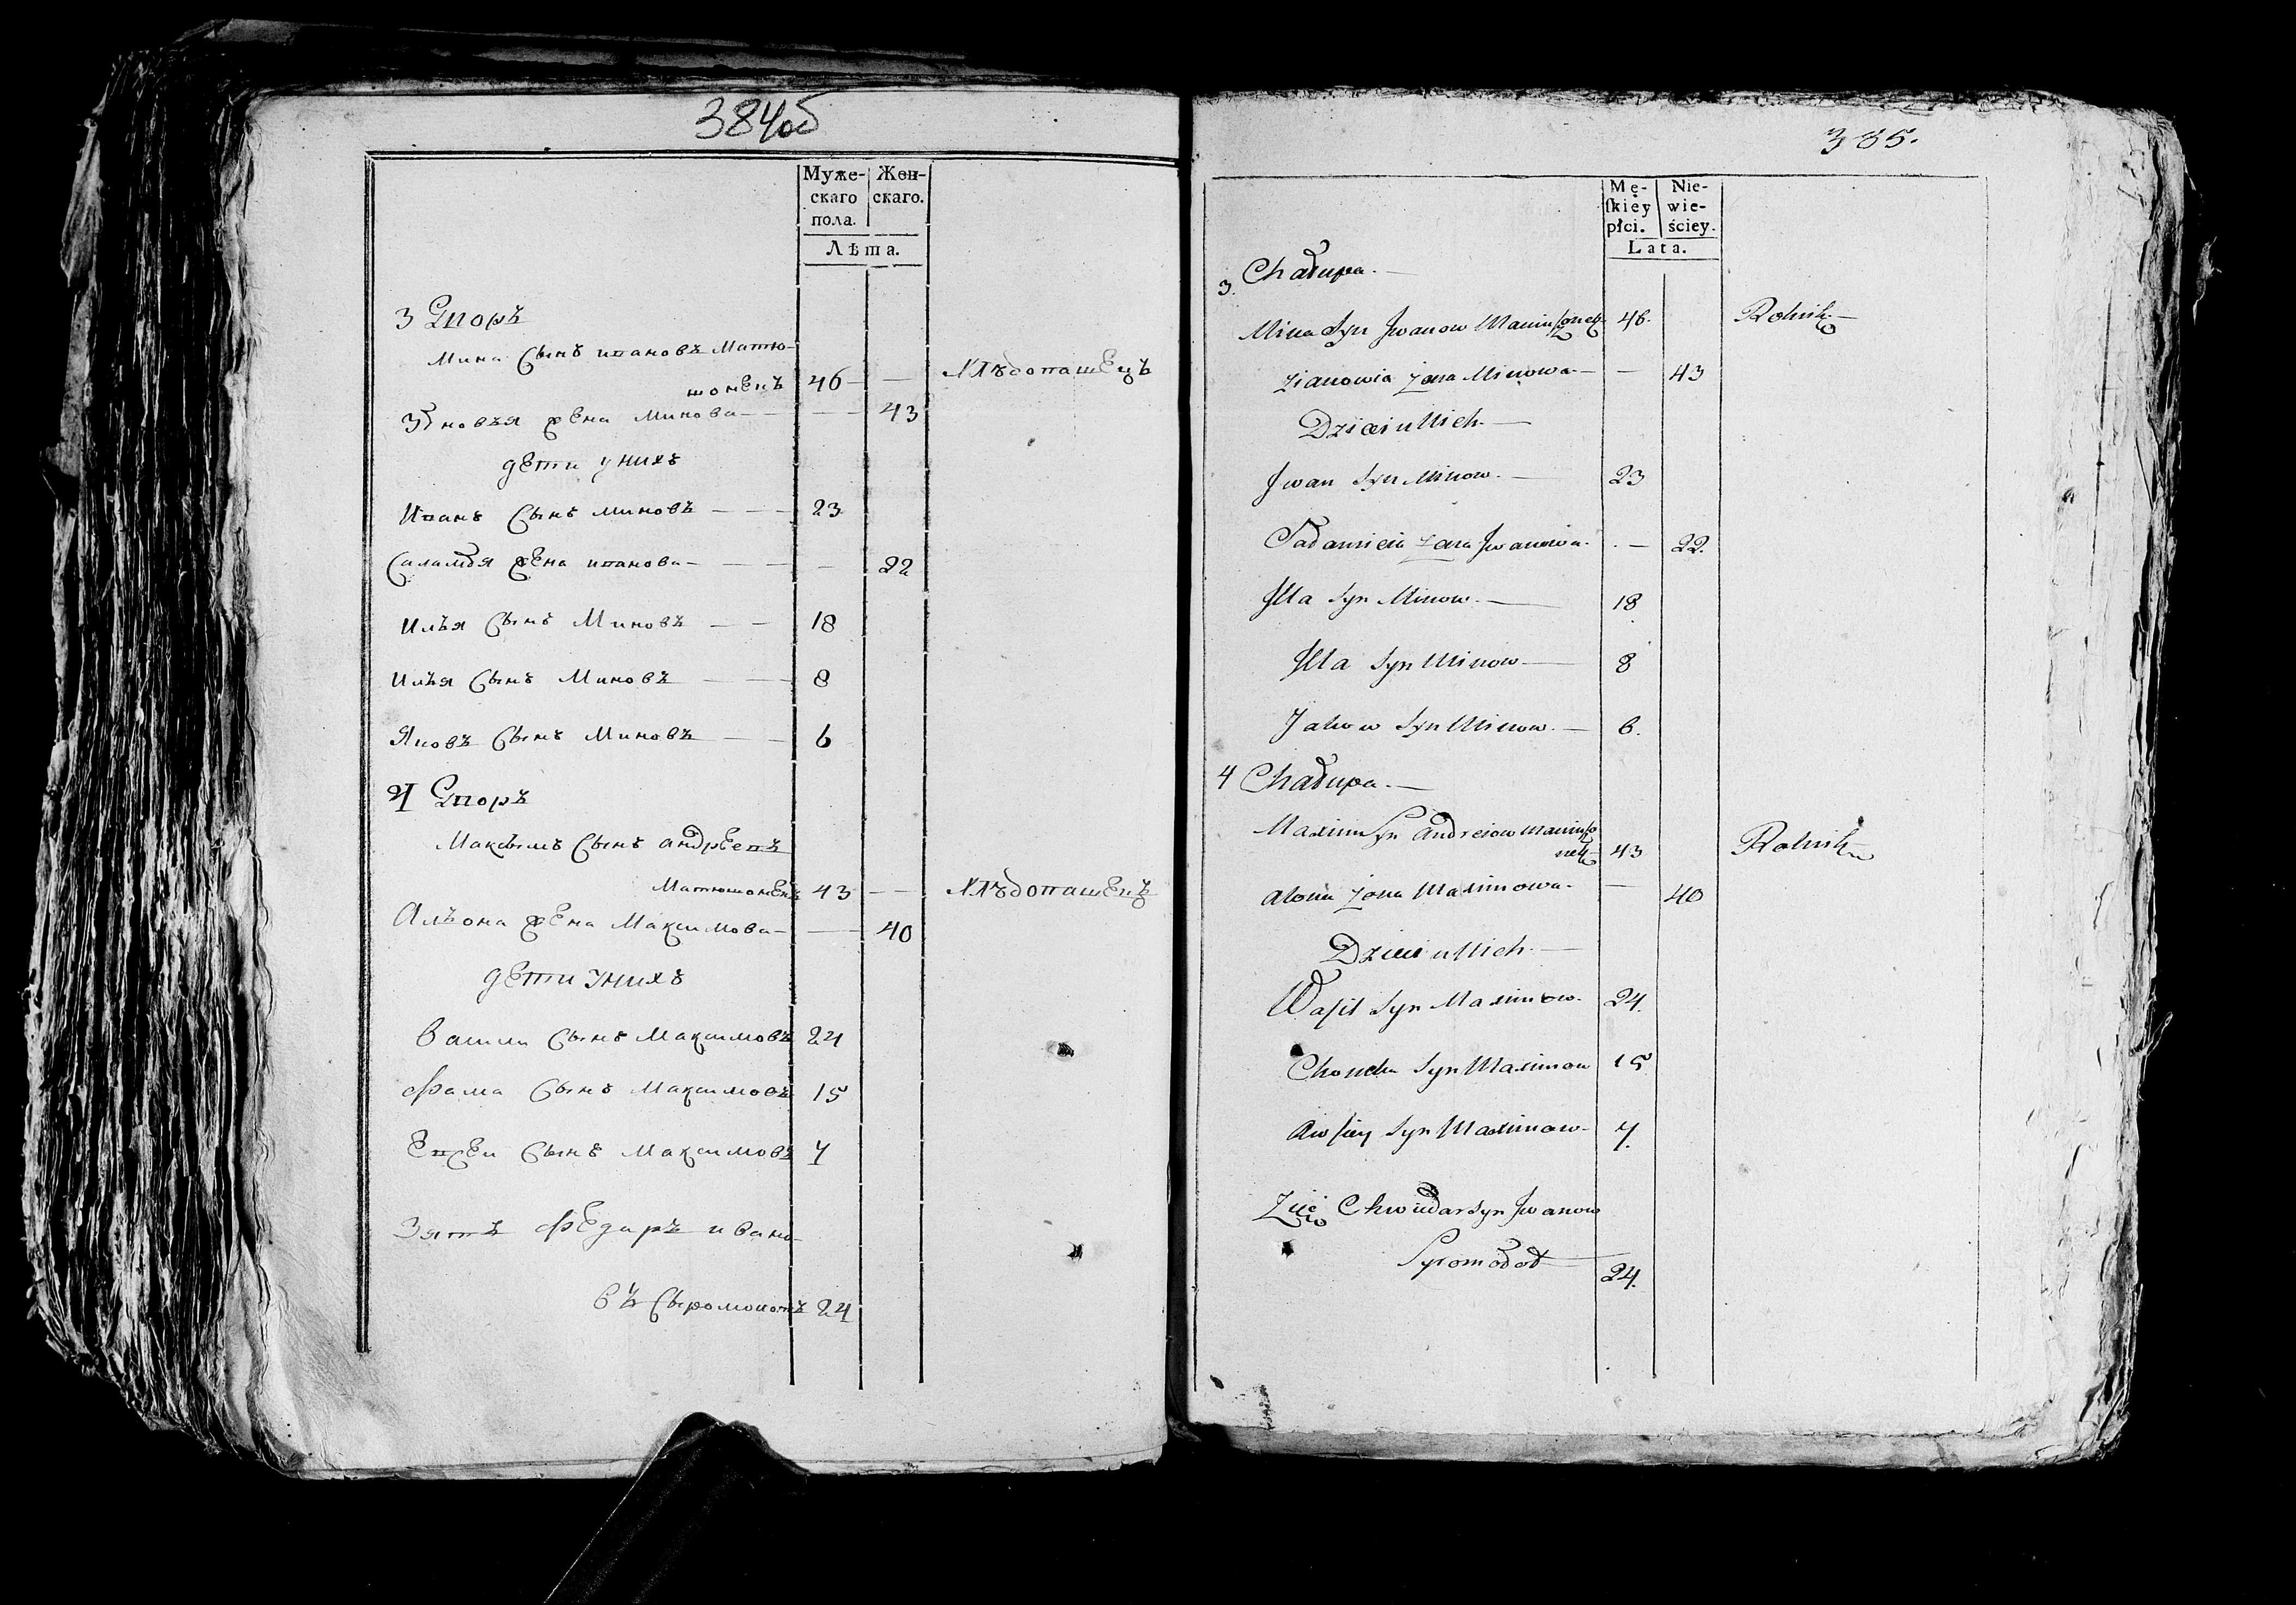 384об
Муже-
скаго
пола.
Жен-
скаго.
Лѣта.
3 Дворъ
Мина Сынъ ивановъ Матю-
шонекъ 46 — — Хлѣбопашецъ
Зѣновья жена Минова — — 43
дети унихъ
Иванъ Сынъ миновъ — — — 23
Саламѣя жена иванова — — — 22
Илья Сынъ Миновъ — — 18
Илья Сынъ Миновъ — — 8
Яковъ Сынъ Миновъ — — 6
4 Дворъ
Максымъ Сынъ андреевъ
Матюшонекъ 43 — — Хлѣбопашецъ
Алъона жена Максимова — — 40
дети унихъ
Васили Сынъ Максимовъ 24
Фама Сынъ Максимовъ 15
Евсеи Сынъ Максимовъ 7
Зятъ Федаръ ивано-
въ Сыромолотъ 24
385.
Mę-
ſkiey
płci.
Nie-
wie-
ściey.
Lata.
3. Chałupa. —
Mina Syn Jwanow 46. Rolnik —
Zianowia Zona Minowa — — 43
Dzieci u Nich —
Jwan Syn Minow. — 23
Zona Jwanowa. — 22.
Jlla Syn Minow. — 18
Jlla Syn Minow — 8
Jakow Syn Minow. — 6.
4 Chałupa. —
Maxim Syn Andreiow
43 Rolnik
Alona Zona Maximowa. — 40
Dzieci u Nich —
Waſil Syn Maximow. 24.
Syn Maximow 15
Awſiey Syn Maximow — 7.
Zięć Chwiedar Syn Jwanow
Syromołot — 24.